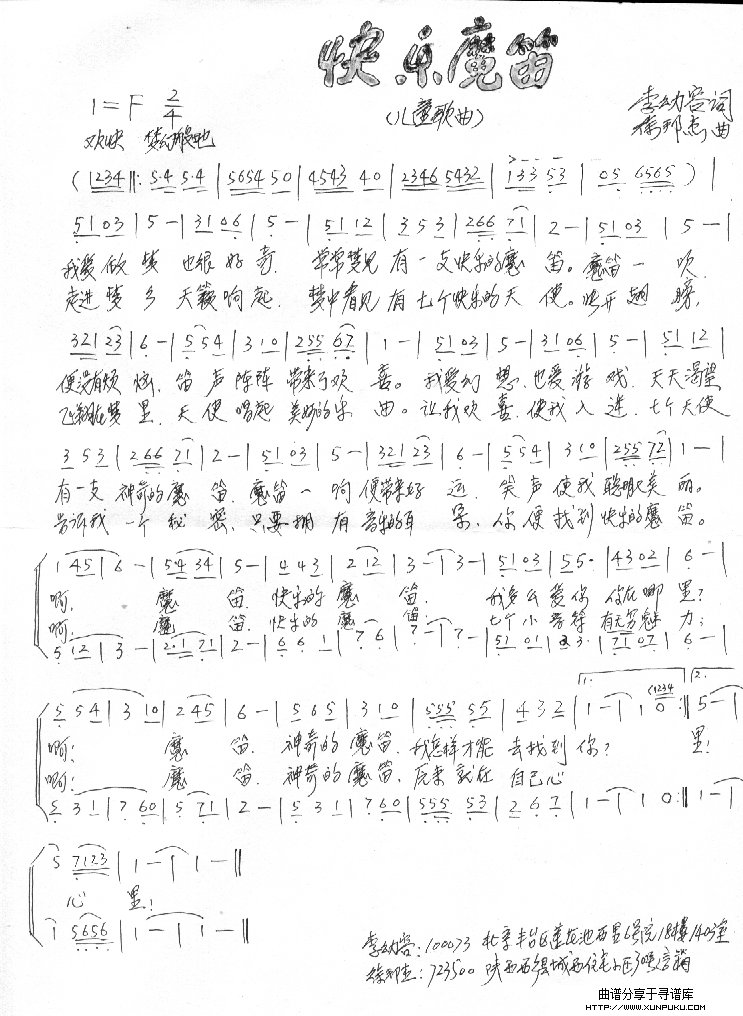 快乐魔笛
(儿童歌曲)
1=F 2/4
李幼容词
徐邦杰曲
欢快 梦幻般地
(1234 ‖: 5·4 5·4 | 5654 50 | 4543 40 | 2346 5432 | 133 53 | 05 6565 ) |
5103 | 5 - | 3106 | 5 - | 5112 | 353 | 266 71 | 2 - | 5103 | 5 - |
我爱做梦 也很好奇. 常常梦见 有一支快乐的魔 笛。魔笛一 吹
走进梦乡 天籁响起. 梦中看见 有七个快乐的天 使。快开翅膀,
321 23 | 6 - | 554 | 310 | 255 67 | 1 - | 5103 | 5 - | 3106 | 5 - | 5112 |
便没有烦 恼. 笛声阵阵 带来了欢 喜。我爱幻 想. 也爱游 戏. 天天渴望
飞翔在梦 里. 天使唱起 美妙的乐 曲。让我欢 喜. 使我入 迷. 七个天使
353 | 266 71 | 2 - | 5103 | 5 - | 321 23 | 6 - | 554 | 310 | 255 72 | 1 - |
有一支 神奇的魔 笛. 魔笛一 响 便带来好 运. 笑声使我 聪明美 丽。
告诉我 一个秘 密. 只要拥 有 音乐的 你便找到 快乐的魔 笛。
1 45 | 6 - | 54 34 | 5 - | 443 | 2 12 | 3 - | 3 - | 5103 | 55· | 4302 | 6 - |
啊, 魔 笛. 快乐的 魔 笛. 我多么爱你 你在哪 里?
啊; 魔 笛. 快乐的 魔 笛. 七个小音符 有无穷魅 力;
5 12 | 3 - | 2·1 71 | 2 - | 661 | 76 | 7 - | 7 - | 51 01 | 23· | 71 07 | 6 - |
1. 2.
554 | 3 10 | 245 | 6 - | 565 | 310 | 555 55 | 432 | 1 - | 1 0 (1234 :‖ 5 - |
啊; 魔 笛. 神奇的 魔笛. 我怎样才能 去找到 你? 里!
啊; 魔 笛. 神奇的 魔笛. 原来就在 自己心
531 | 760 | 571 | 2 - | 531 | 760 | 555 53 | 267 | 1 - | 10 :‖ 1 - |
5 7123 | 1 - | 1 - ‖
心 里!
1 5656 | 1 - | 1 - ‖
李幼容: 100073 北京丰台区莲花池西里6号院18楼1403室
徐邦杰: 723500 陕西西乡县城西住宅小区
曲谱分享于寻谱库
HTTP://WWW.XUNPUKU.COM